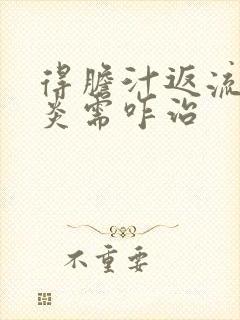 得膽汁返流
炎需咋治
不重要